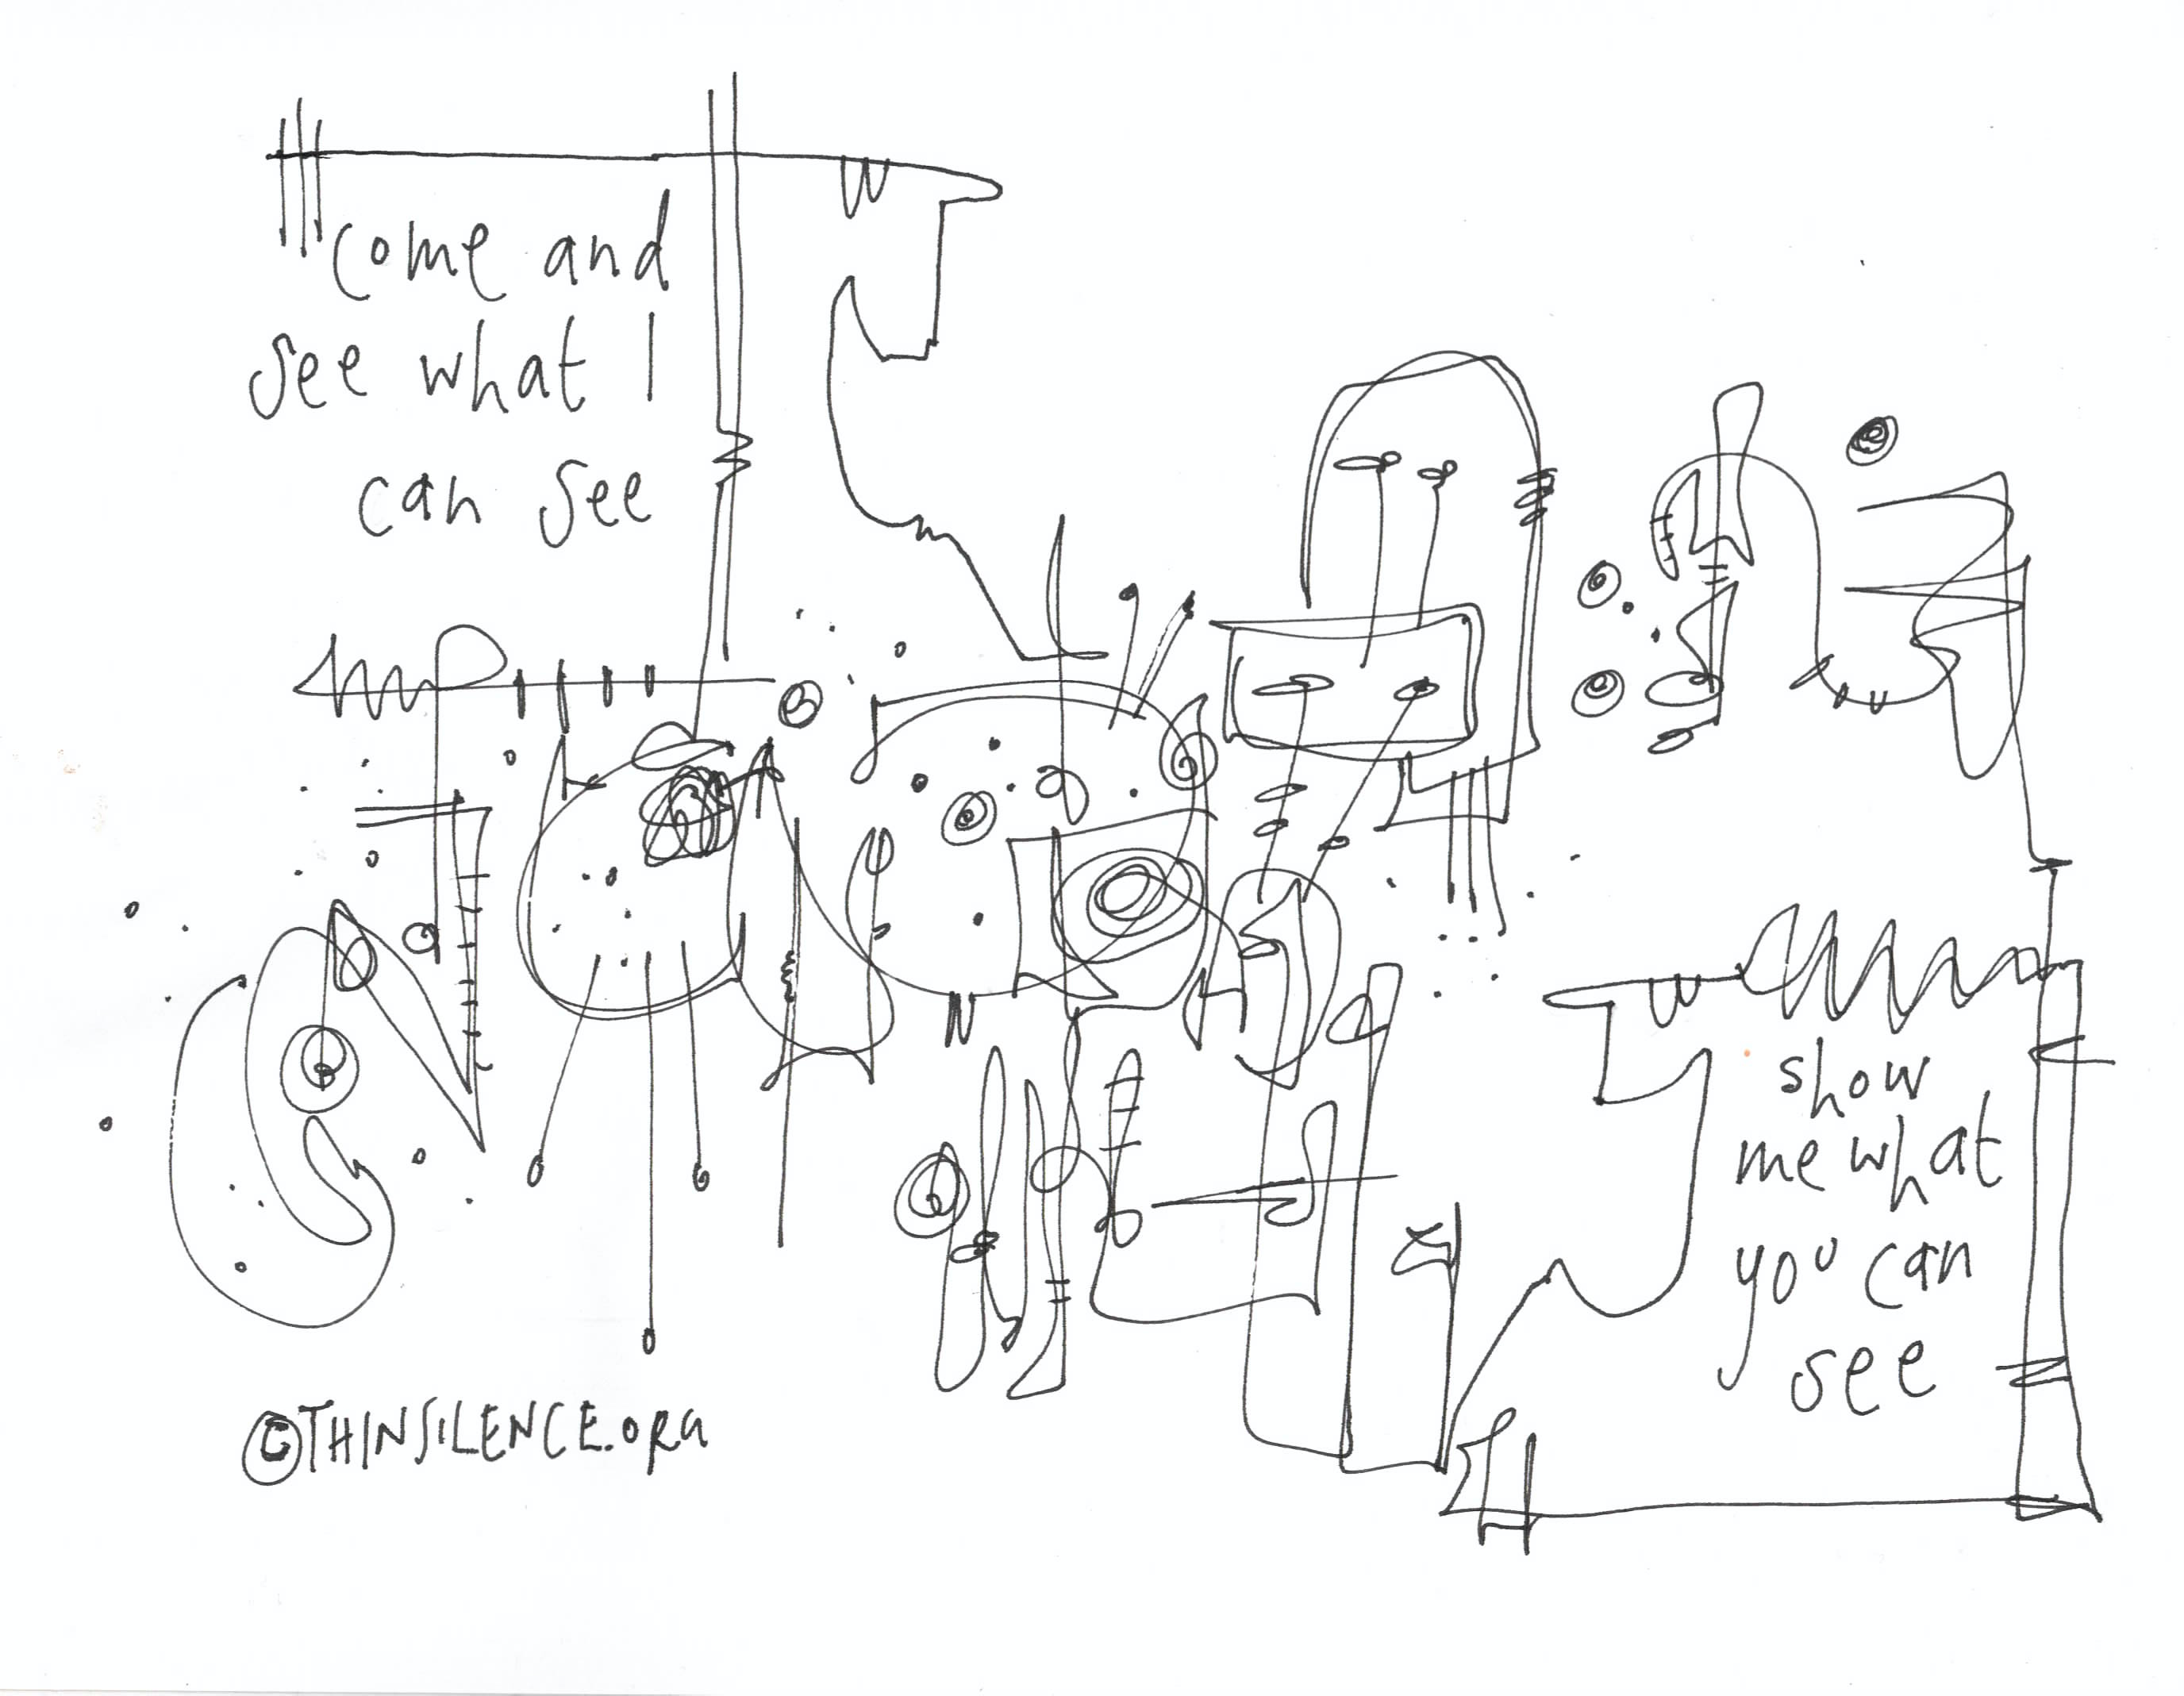 come and
see what I
can see
show
me what
you can
see
©THINSILENCE.ORG